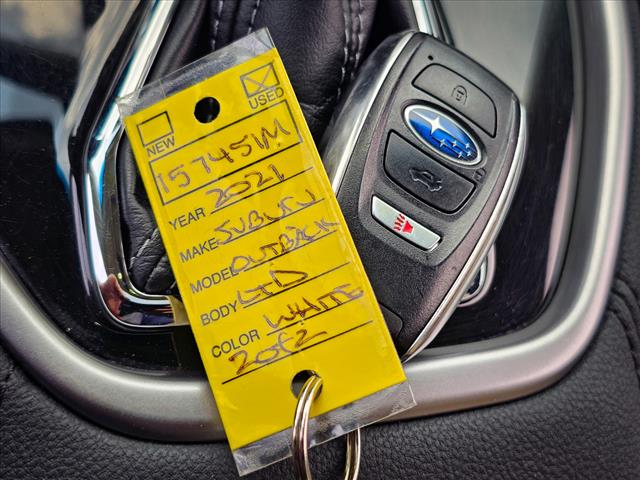 NEW USED
157451M
YEAR 2021
MAKE SUBURU
MODEL OUTBACK
BODY LTD
COLOR WHITE
20E2